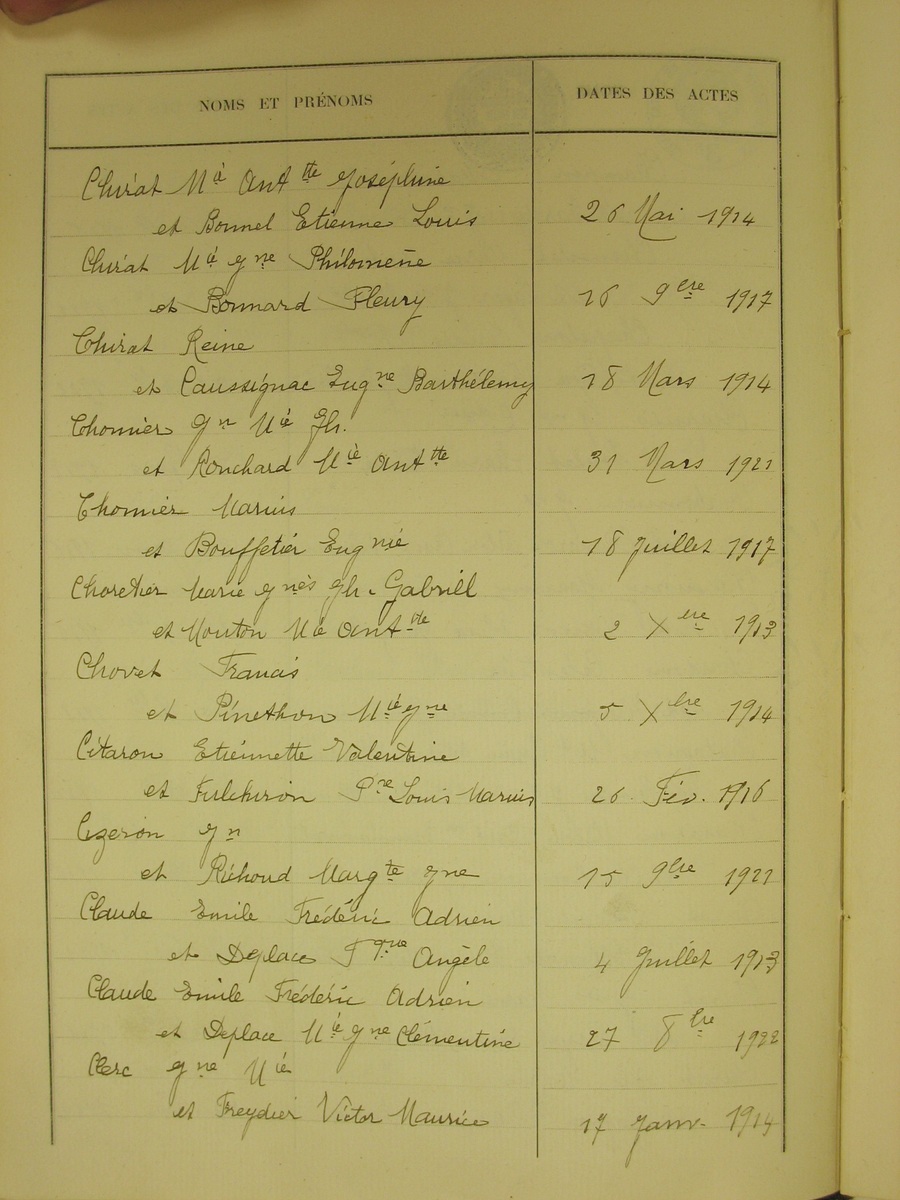 NOMS ET PRÉNOMS
DATES DES ACTES
Chirat Mie Anttte Joséphine
et Bonnel Etienne Louis 26 Mai 1914
Chirat Mie Jne Philomène
et Bonnard Fleury 16 9bre 1917
Chirat Reine
et Caussignac Eugne Barthélemy 18 Mars 1914
Chomier Jn Mie Jh.
et Ronchard Mie Antte 31 Mars 1921
Chomier Marius
et Bouffetier Eugnie 18 Juillet 1917
Choretier Marie Jnès Jh. Gabriel
et Mouton Mie Antte 2 Xbre 1913
Chovet Francis
et Pinethon Mie Jne 5 Xbre 1914
Citaron Etiennette Valentine
et Fulchiron Pre Louis Marius 26 Fév. 1916
Cizeron Jn
et Richoud Margte Jne 15 9bre 1921
Claude Emile Frédéric Adrien
et Deplace Angèle 4 Juillet 1913
Claude Emile Frédéric Adrien
et Deplace Mie Jne Clémentine 27 8bre 1922
Clerc Jne Mie
et Freydier Victor Maurice 17 Janv. 1914